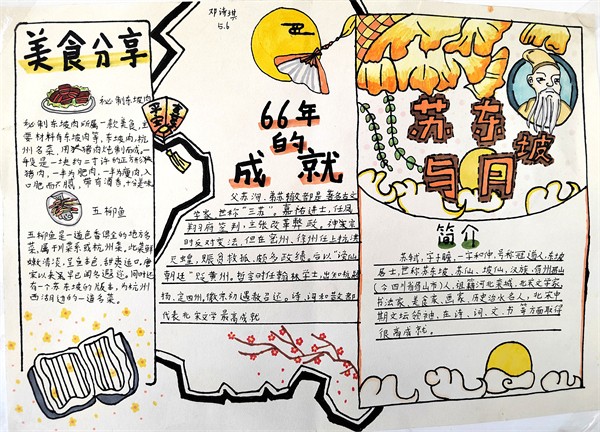 美食分享
秘制东坡肉
秘制东坡肉所属一款美食,主
要材料有东坡肉等,东坡肉,杭
州名菜,用猪肉炖制而成,一
般是一块约二寸许的正方形
猪肉,一半为肥肉,一半为瘦肉,入
口肥而不腻,带有酒香,十分美味
五柳鱼
五柳鱼是一道色香俱全的地方名
菜,属于川菜系或杭州菜,此菜鲜
嫩清淡,呈鱼色,甜爽适口,唐
宋以来
有一个苏东坡的版本,为杭州
西湖边的一道名菜。
邓诗琪
5.6
平
安
喜
66年
的
成就
父苏洵、弟苏辙都是著名古文
学家,世称“三苏”。嘉祐进士,任凤
翔府签判,主张改革弊政,神宗
时反对变法,但在密州、徐州任上抗洪
灭蝗,赈贫救孤,颇多政绩。后以“谤讪
朝廷”贬黄州。哲宗时任翰林学士,出知杭
扬、定四州,徽宗初遇赦召还。诗、词和散文都
代表北宋文学最高成就
苏东坡
与月
简介
苏轼,字子瞻,一字和仲,号称
居士,世称苏东坡、苏仙、坡仙,汉族,眉州眉山
(今四川省眉山市)人,祖籍河北栾城,北宋文学家、
书法家、美食家、画家,历史治水名人,北宋中
期文坛领袖,在诗、词、文、书等方面取得
很高成就。